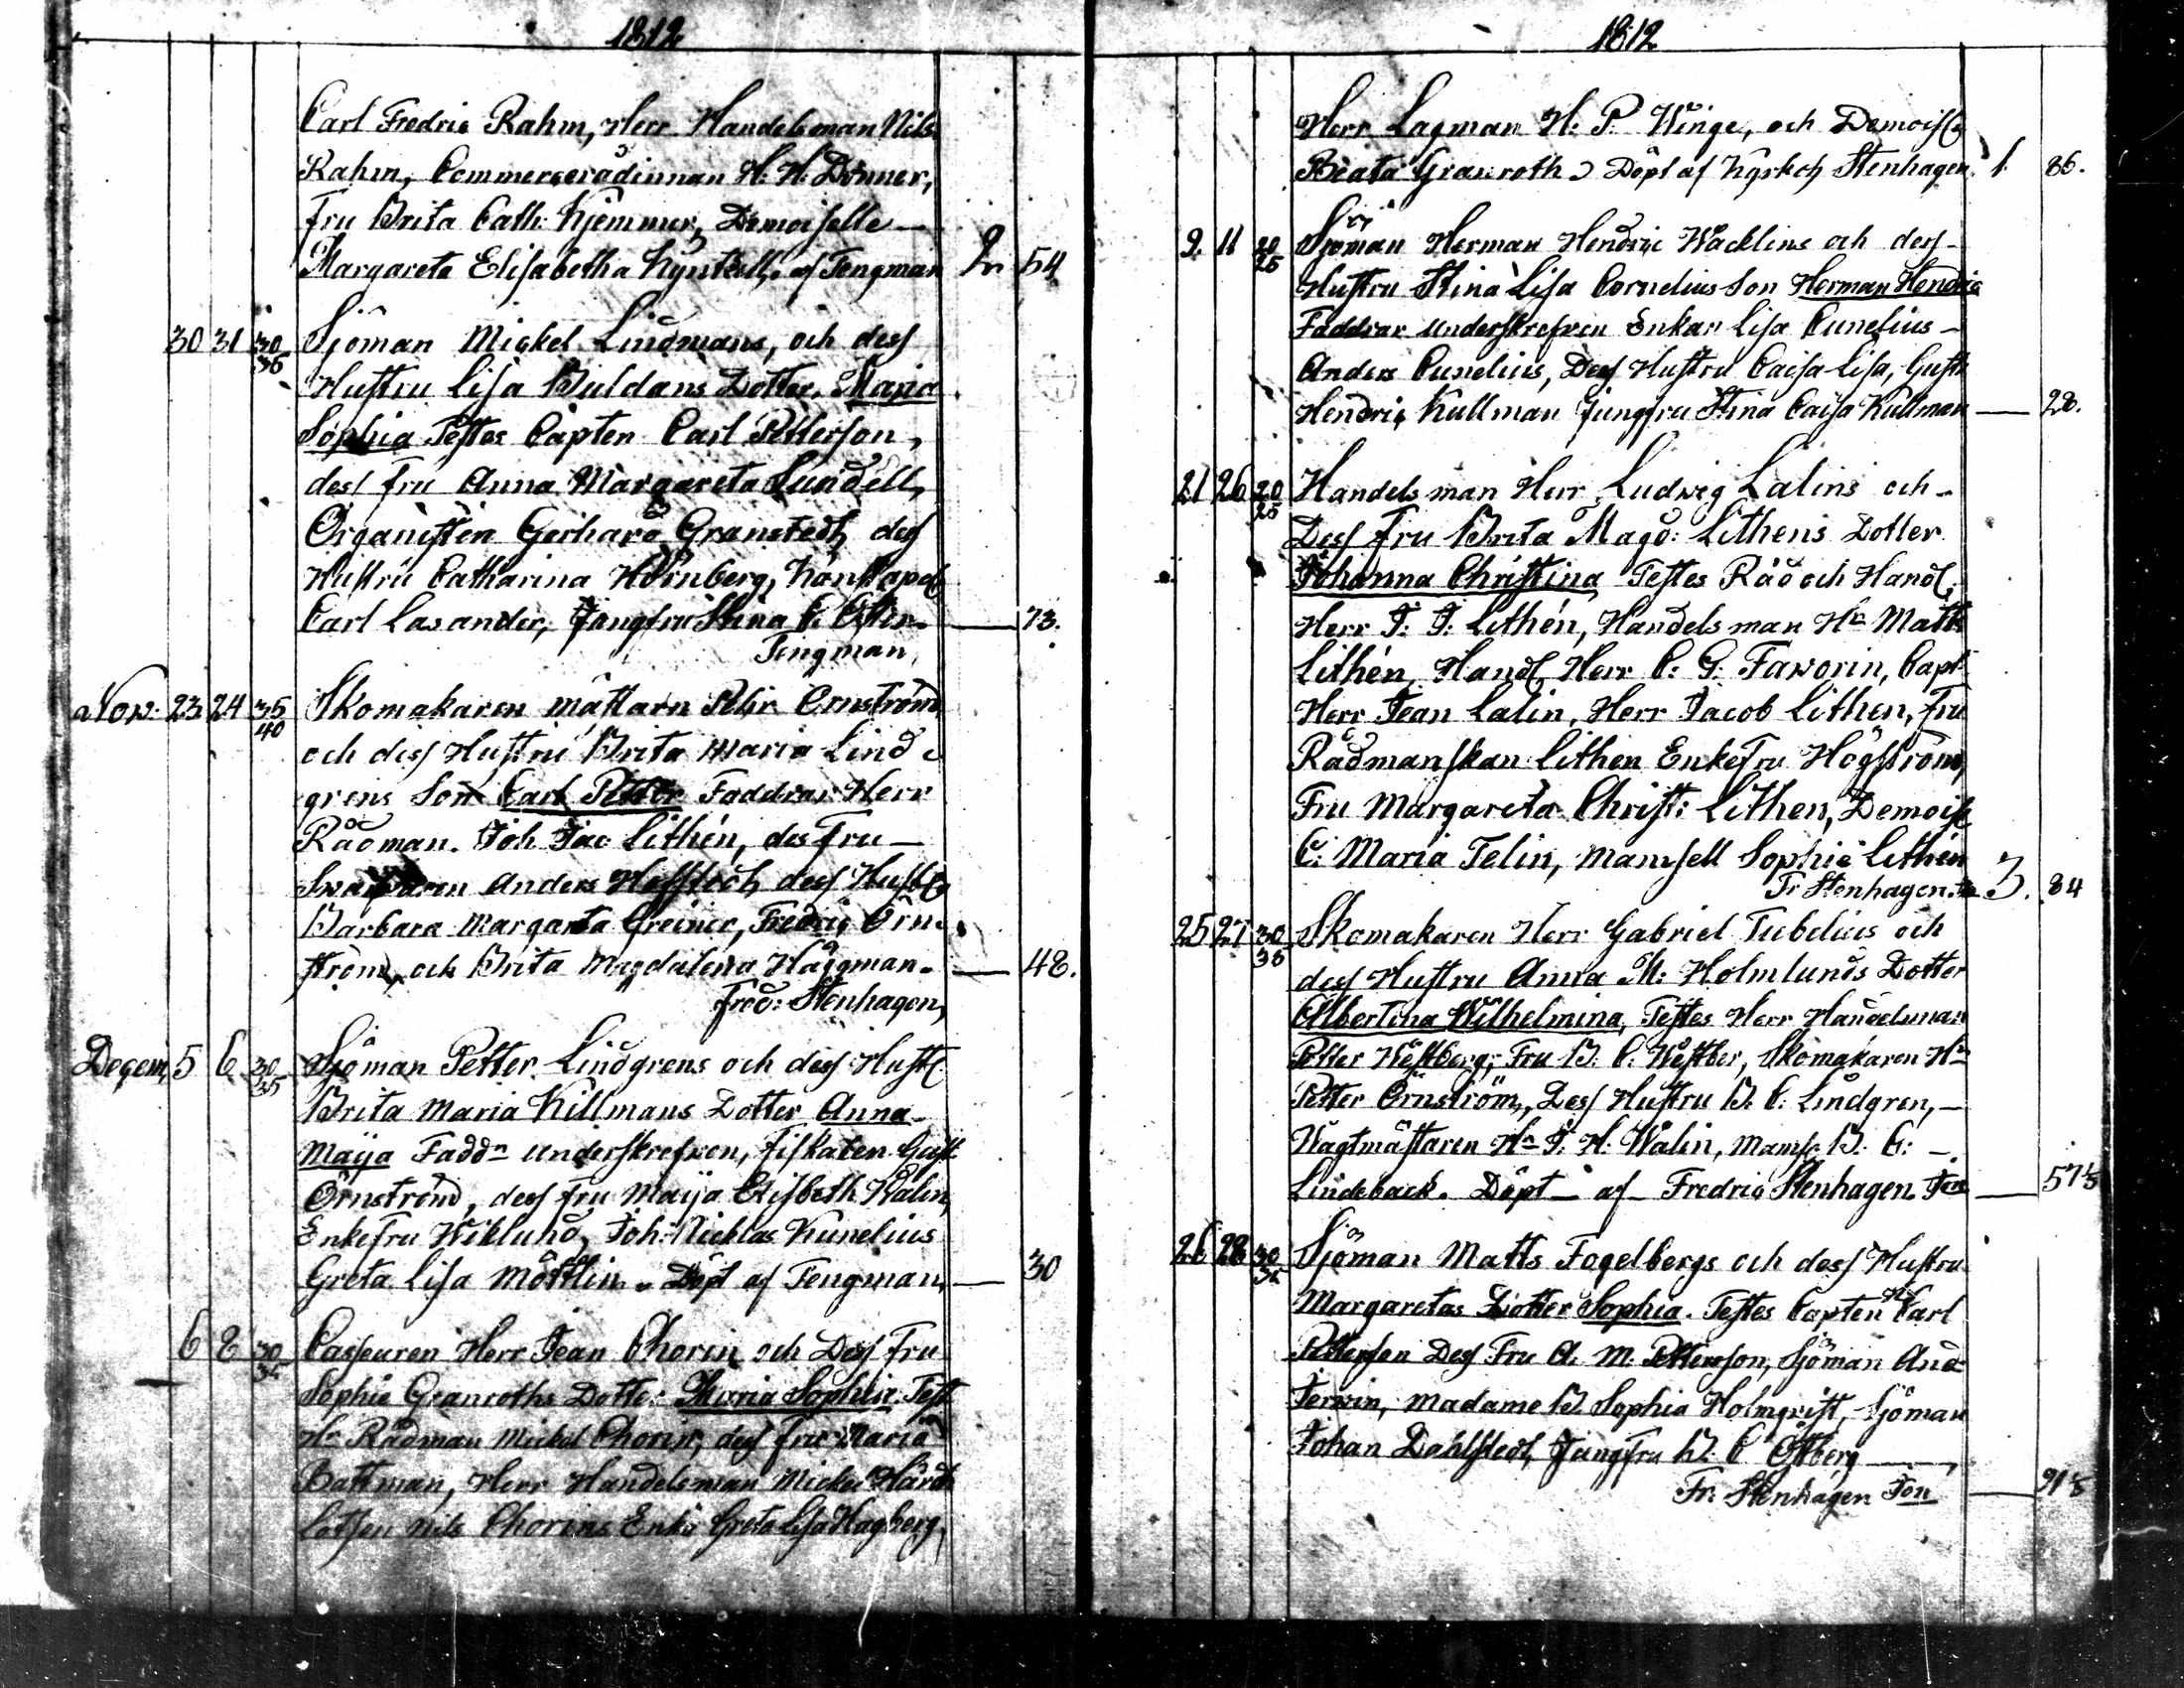 1812
Carl Fredric Rahm, Herr Handelsman Nils
Rahm, Commerceradinnan H: H: Donner,
Fru Brita Cath: Kjemmer, Demoiselle —
Margareta Elisabetha af Tengman 2 54
30 31 30/35 Sjöman Mickel Lindmans, och dess
Hustru Lisa Buldans Dotter, Maria
Sophia Testes Capten Carl Petterson,
dess fru Anna Margareta Lundell,
Organisten Gerhard Granstedt, dess
Hustru Catharina
Carl Lasander, Jungfru Stina C. — 73.
Tengman,
Nov: 23 24 35/40 Skomakaren mästarn Pehr Ornström
och dess Hustru Brita Maria Lind
grens Son Carl Petter Faddrar Herr
Rådman. Joh Jac Lithén, des fru —
Anders dess Hust
Barbara Margareta Greiner, Fredric Örn
ström, och Brita Magdalena Häggman. — 48.
Fred: Stenhagen,
Decem, 5 6 30/35 Sjöman Petter Lindgrens och dess Hust
Brita Maria Killmans Dotter Anna
Maija Faddr underskrefven, Fiskalen Gust
Örnström, dess fru Maija Elisbeth Walin,
Enkefru Wiklund, Joh: Nicklas Kunelius
Greta Lisa Möttlin. Döpt af Tengman, — 30
6 8 30/35 Casseuren Herr Jean Chorin och Dess fru
Sophia Granroths Dotter Maria Sophia. Test
Hr Rådman Mickel Chorin, dess fru Maria
Battman, Herr Handelsman Mickel
Lotsen Nils Chorins Enka Greta Lisa Hagberg,
1812
Herr Lagman H: P: Winge, och Demoisl
Beata Granroth Döpt af Stenhagen. 1. 86.
9. 11 20/25 Sjöman Herman Hendric Wacklins och dess
Hustru Stina Lisa Cornelius Son Herman Hendric
Faddrar underskrefven Enkan Lisa Cunelius —
Anders Cunelius, Dess Hustru Caisa Lisa, Gust
Hendric Kullman Jungfru Stina Caisa Kullman — 28.
21 26 20/25 Handelsman Herr Ludvig Lalins och
Dess Fru Brita Magd: Lithens Dotter
Johanna Christina Testes Råd och Handl
Herr J: J: Lithén, Handelsman Hr Matts
Lithén, Handl Herr C: G: Faworin, Capt
Herr Jean Lalin, Herr Jacob Lithen, Fru
Rådmanskan Lithen Enkefru Högström,
Fru Margareta Christ: Lithen, Demoisl
C: Maria Telin, Mamsell Sophie Lithén
Fr Stenhagen. 3. 84
25 27 30/35 Skomakaren Herr Gabriel Tubelius och
dess Hustru Anna M: Holmlunds Dotter
Albertina Wilhelmina, Testes Herr Handelsman
Petter Westberg, Fru B. C. Westber, Skomakaren Hr
Petter Örnström, Dess Hustru B. C. Lindgren, —
Wagtmästaren Hr J. H. Walin, Mams B. C: —
Lindeback. Döpt — af — Fredric Stenhagen — 57
26 28 30/35 Sjöman Matts Fogelbergs och dess Hustru
Margaretas Dotter Sophia. Testes Capten Carl
Petterson Dess Fru A. M. Petterson, Sjöman And
Jerwin, Madame B. Sophia Holmqvist, Sjöman
Johan Dahlstedt, Jungfru B. C Östberg —
Fr: Stenhagen —